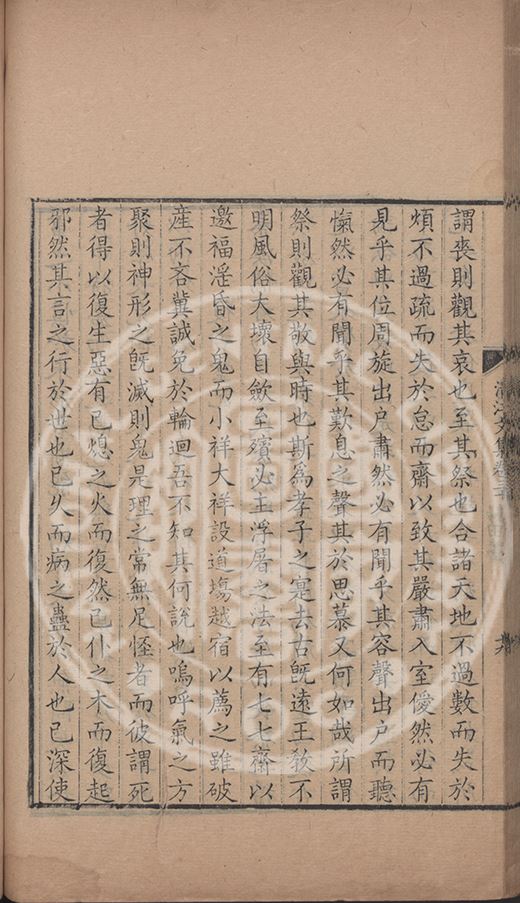 謂喪則觀其哀也至其祭也合諸天地不過數而失於
煩不過疏而失於怠而齋以致其嚴肅入室僾然必有
見乎其位周旋出户肅然必有聞乎其容聲出户而聽
愾然必有聞乎其歎息之聲其於思慕又何如哉所謂
祭則觀其敬與時也斯為孝子之寔去古旣遠王敎不
明風俗大壞自斂至殯必主浮屠之法至有七七齋以
邀福滛昏之鬼而小祥大祥設道塲越宿以薦之雖破
産不吝冀誠免於輪迴吾不知其何說也嗚呼氣之方
聚則神形之旣滅則鬼是理之常無足怪者而彼謂死
者得以復生惡有已熄之火而復然已仆之木而復起
邪然其言之行於世也已久而病之蠱於人也已深使